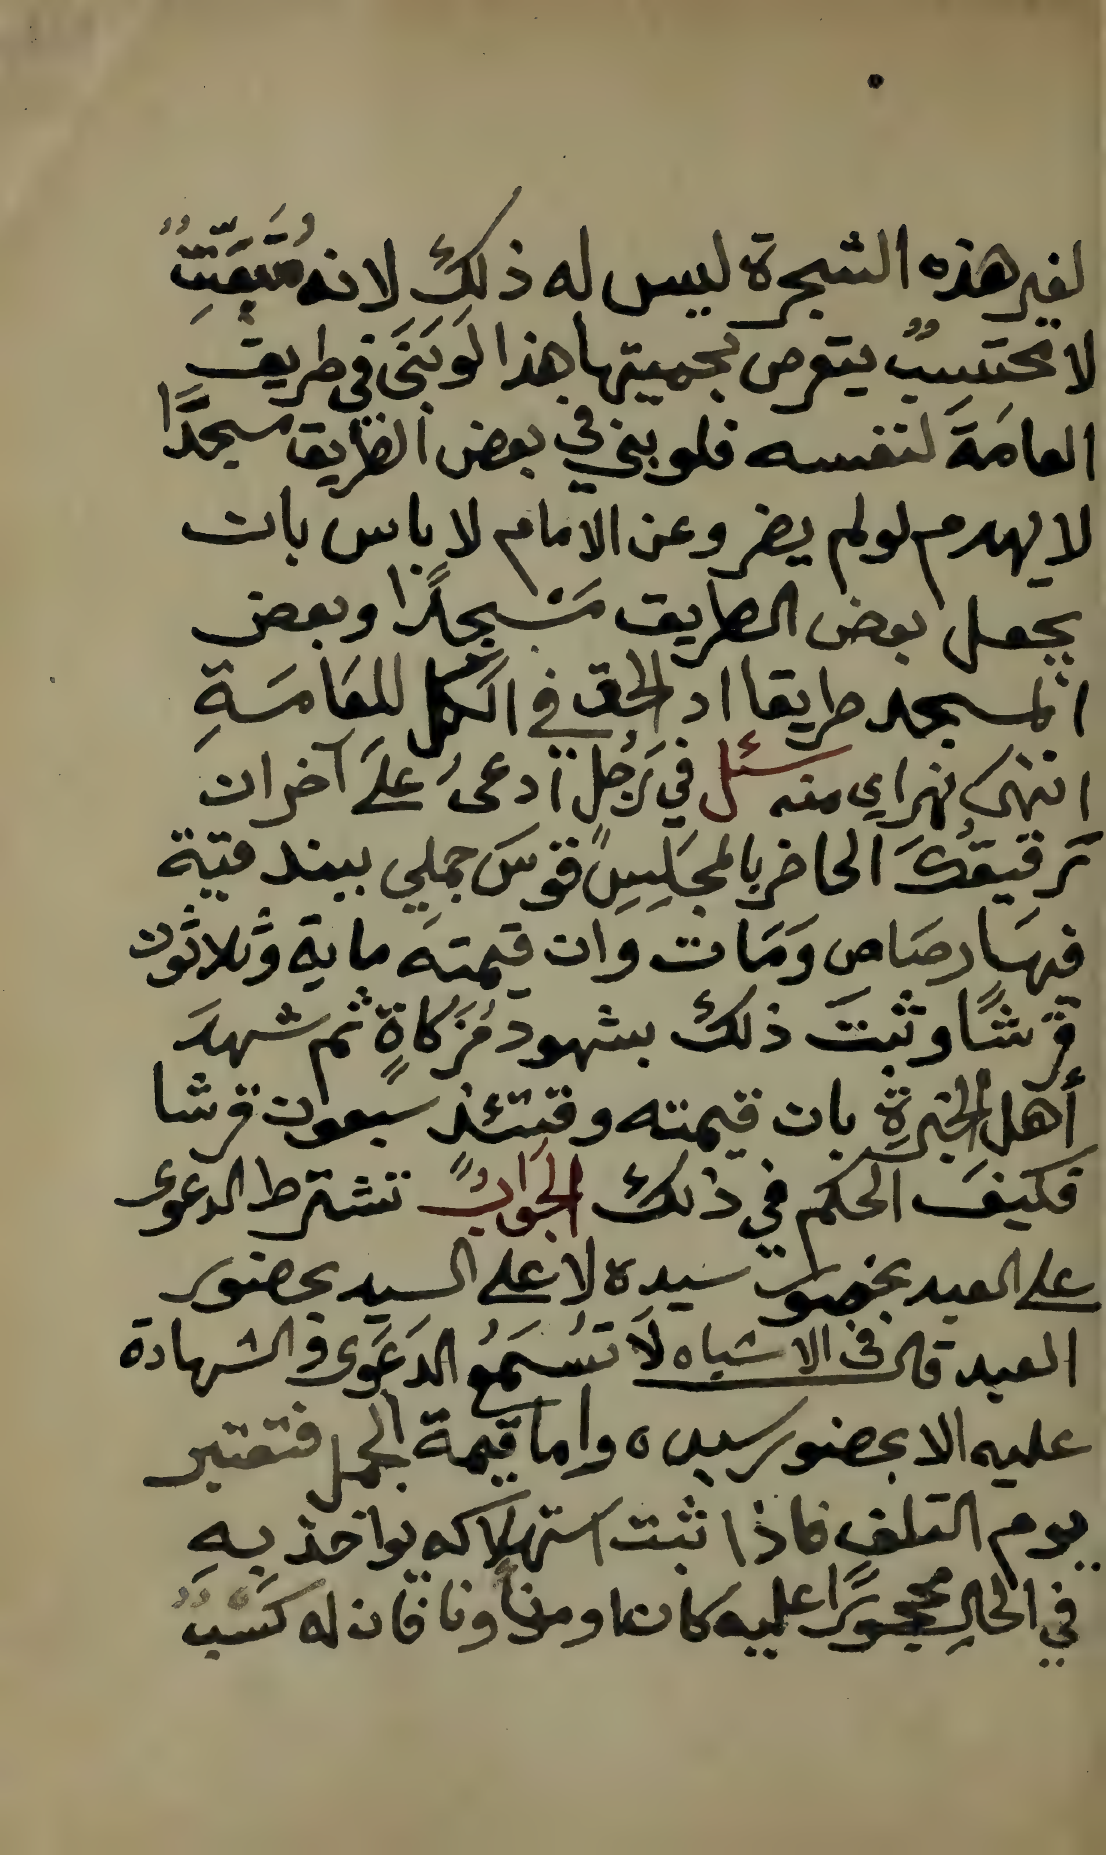 لغير هذه الشجرة ليس له ذلك لانه متعنت
لا محتسب يتعرض بحميتها هذا لو بنى في طريق
العامة لنفسه فلو بنى في بعض الطريق مسجدًا
لا يهدم لو لم يضر وعن الامام لا باس بان
يجعل بعض الطريق مسجدًا وبعض
المسجد طريقا اذ الحق في الكل للعامة
انتهى نهر اي منه سئل في رجل ادعى على آخر ان
رقيقك الحاضر بالمجلس قوس جملي ببندقية
فيها رصاص ومات وان قيمته ماية وثلاثون
قرشًا وثبت ذلك بشهود مزكاةٍ ثم شهد
أهل الخبرة بان قيمته وقتئذ سبعون قرشا
فكيف الحكم في ذلك الجواب تشترط الدعوى
على العبد بحضور سيده لا على السيد بحضور
العبد قال في الاشباه لا تسمع الدعوى والشهادة
عليه الا بحضور سيده واما قيمة الجمل فتعتبر
يوم التلف فاذا ثبت استهلاكه يواخذ به
في الحال محجورًا عليه كان او مأذونا فان له كسب